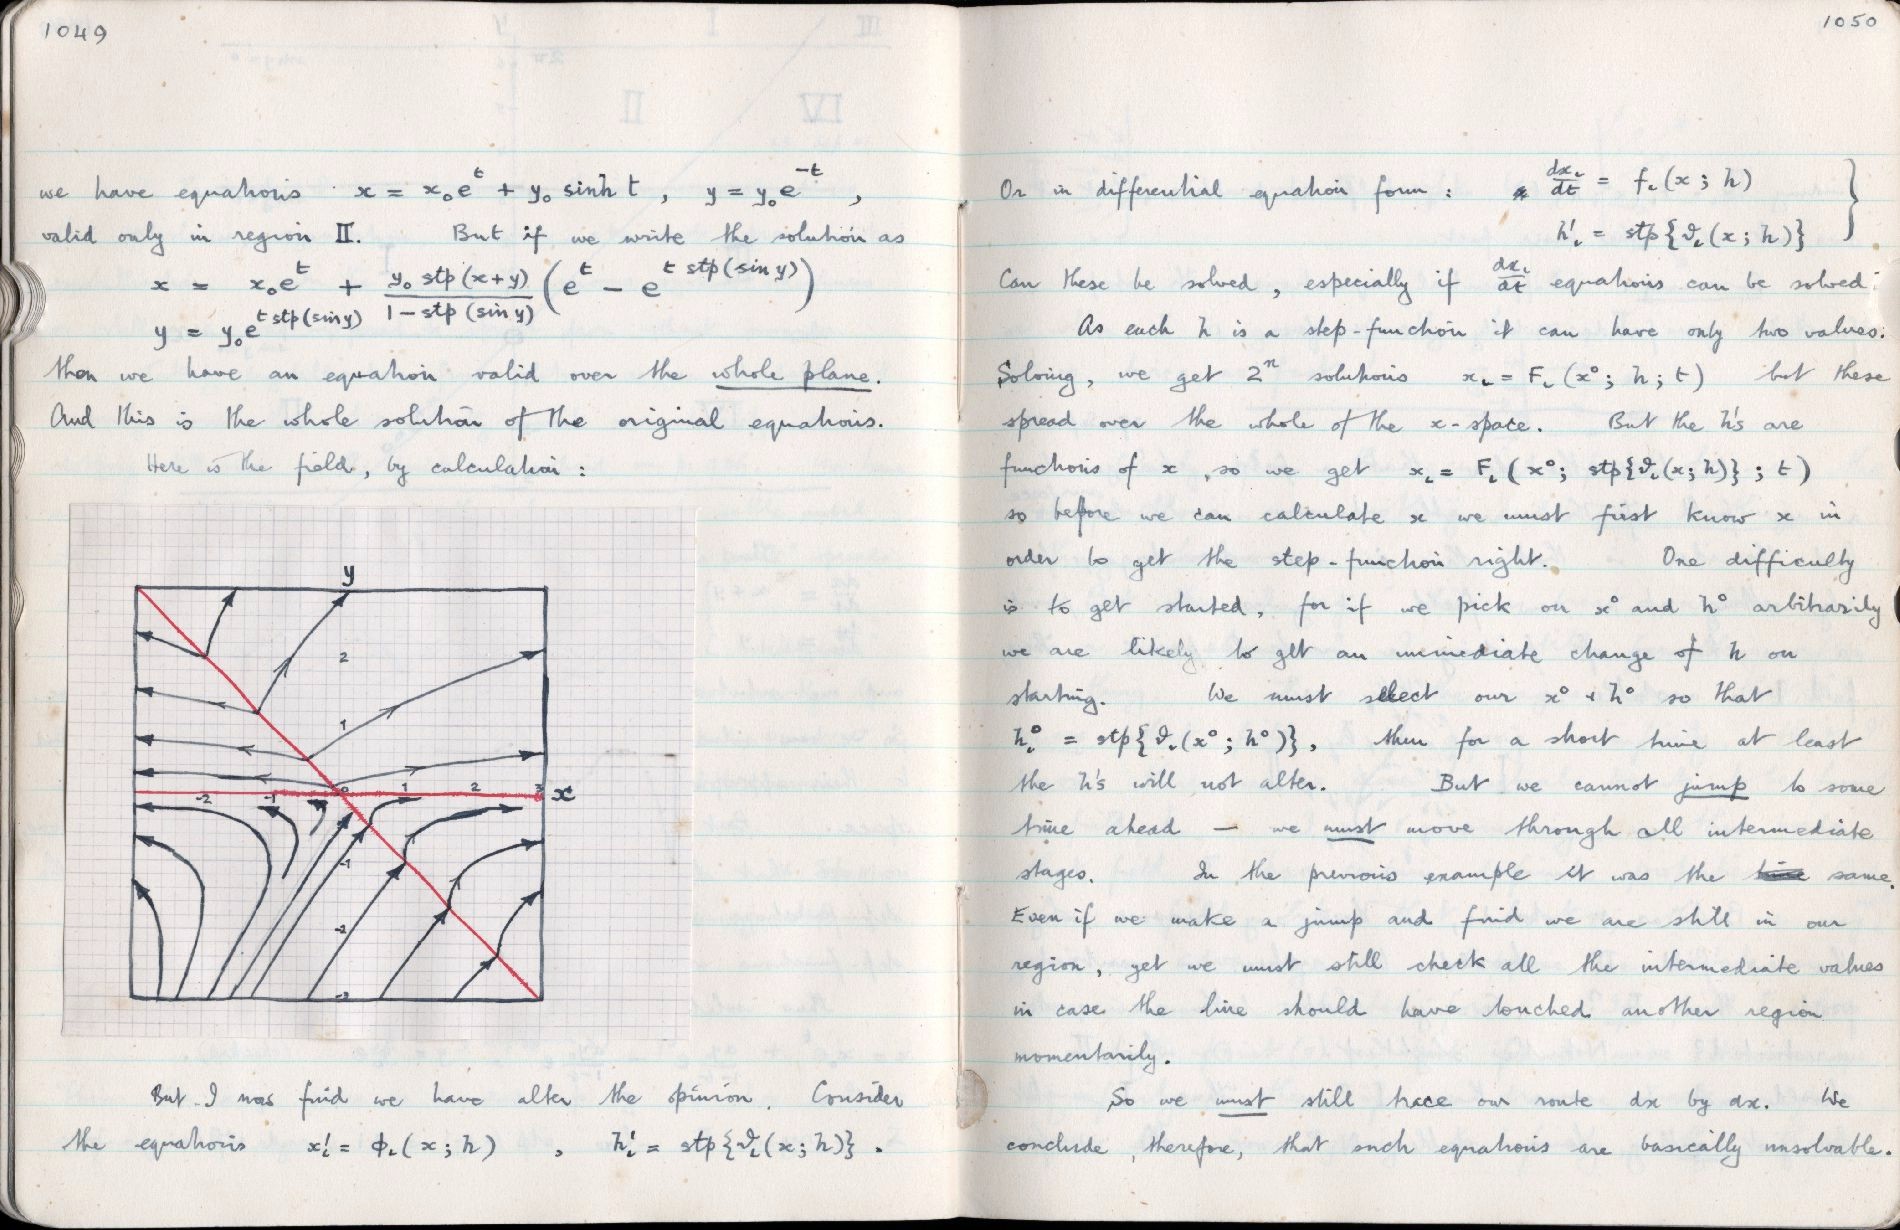 1049
we have equations x = x₀eᵗ + y₀ sinh t , y = y₀e⁻ᵗ ,
valid only in region II. But if we write the solution as
x = x₀eᵗ + y₀ stp(x+y) / 1 − stp(sin y) (eᵗ − e^{t stp(sin y)})
y = y₀e^{t stp(sin y)}
then we have an equation valid over the whole plane.
And this is the whole solution of the original equations.
Here is the field, by calculation :
y
2
1
-2 -1 0 1 2 3 x
-1
-2
-3
But I now find we have alter the opinion. Consider
the equations x'ᵢ = ϕᵢ(x; h) , h'ᵢ = stp{ϑᵢ(x; h)} .
1050
Or in differential equation form : dxᵢ/dt = fᵢ(x; h) }
h'ᵢ = stp{ϑᵢ(x; h)}
Can these be solved, especially if dxᵢ/dt equations can be solved:
As each h is a step-function it can have only two values.
Solving, we get 2ⁿ solutions xᵢ = Fᵢ(x°; h; t) but these
spread over the whole of the x-space. But the h's are
functions of x, so we get xᵢ = Fᵢ(x°; stp{ϑᵢ(x; h)}; t)
so before we can calculate x we must first know x in
order to get the step-function right. One difficulty
is to get started, for if we pick on x° and h° arbitrarily
we are likely to get an immediate change of h on
starting. We must select our x° + h° so that
hᵢ° = stp{ϑᵢ(x°; h°)}, then for a short time at least
the h's will not alter. But we cannot jump to some
time ahead — we must move through all intermediate
stages. In the previous example it was the same.
Even if we make a jump and find we are still in our
region, yet we must still check all the intermediate values
in case the line should have touched another region
momentarily.
So we must still trace our route dx by dx. We
conclude, therefore, that such equations are basically unsolvable.